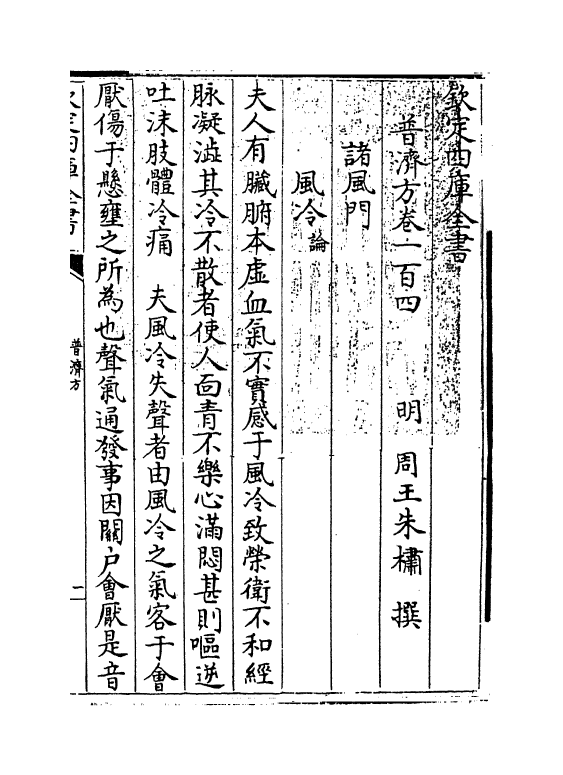 欽定四庫全書
普濟方卷一百四 明 周王朱橚 撰
諸風門
風冷論
夫人有臟腑本虚血氣不實感于風冷致榮衛不和經
脉凝澁其冷不散者使人面青不樂心滿悶甚則嘔逆
吐沫肢體冷痛 夫風冷失聲者由風冷之氣客于會
厭傷于懸壅之所為也聲氣通發事因關户會厭是音
普濟方